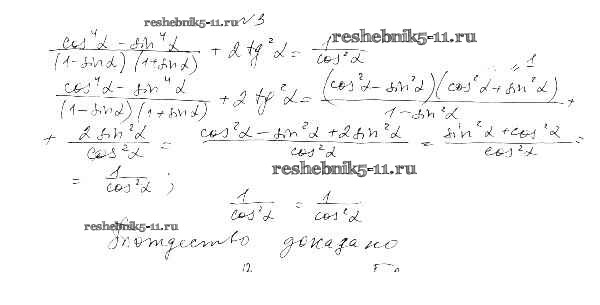 reshebnik5-11.ru №3
reshebnik5-11.ru
(cos⁴α - sin⁴α)/((1-sinα)(1+sinα)) + 2tg²α = 1/cos²α
(cos⁴α - sin⁴α)/((1-sinα)(1+sinα)) + 2tg²α = ((cos²α - sin²α)(cos²α + sin²α))/(1-sin²α) + "1
+ 2sin²α/cos²α = (cos²α - sin²α + 2sin²α)/cos²α = (sin²α + cos²α)/cos²α =
reshebnik5-11.ru
= 1/cos²α ; 1/cos²α = 1/cos²α
reshebnik5-11.ru
Тождество доказано